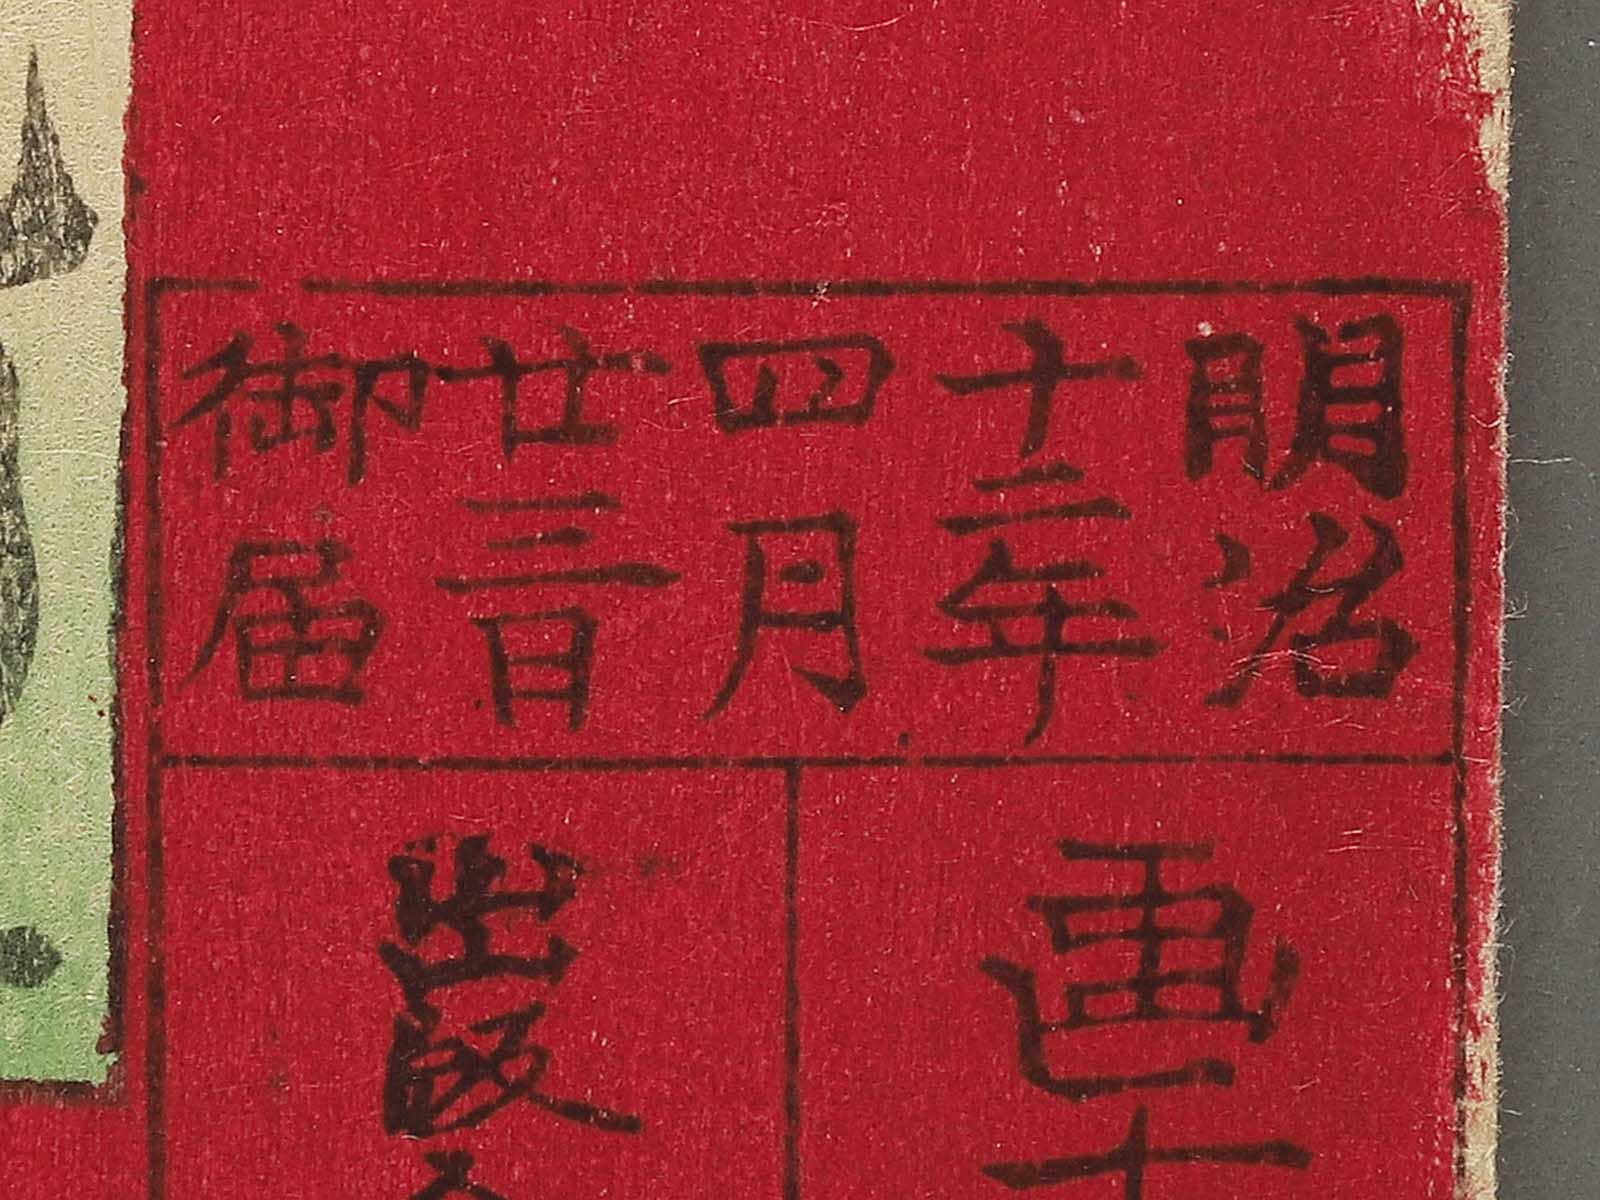 明治
十二年
四月
廿三日
御届
画工
出版人